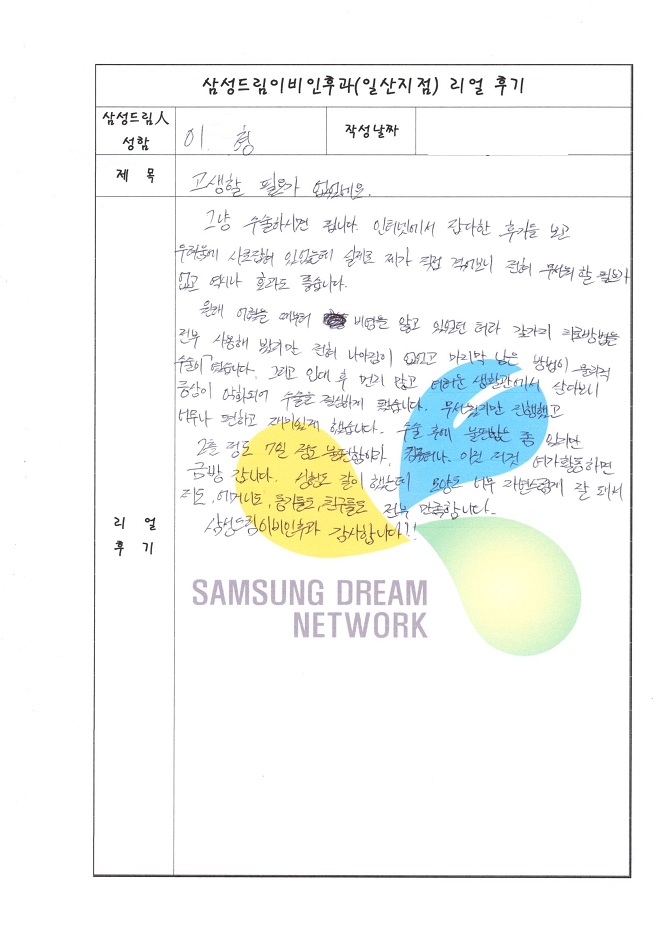 삼성드림이비인후과(일산지점) 리얼 후기
삼성드림人
성함
이 형
작성날짜
제 목
고생할 필요가 없었네요.
리 얼
후 기
그냥 수술하시면 됩니다. 인터넷에서 잡다한 후기들 보고
사로잡혀 있었는데 실제로 제가 직접 겪어보니 전혀 무서워 할 필요가
없고 역시나 효과도 좋습니다.
원래 어렸을 때부터 비염을 앓고 있었던 터라 갖가지 치료방법을
전부 사용해 봤지만 전혀 나아짐이 없었고 마지막 남은 방법이
수술이었습니다. 그리고 입대 후 먼지 많고 더러운 생활관에서 살다보니
증상이 악화되어 수술을 결심하게 됐습니다. 무서웠지만 진행했고
너무나 편하고 재미있게 했습니다. 수술 후에 불편함은 좀 있지만
정도 7일 정도 불편함이라, 이것 저것 여가활동하면
금방 갑니다. 성형도 같이 했는데 모양도 너무 자연스럽게 잘 돼서
저도, 어머니도, 동기들도, 친구들도 전부 만족합니다.
삼성드림이비인후과 감사합니다!!
SAMSUNG DREAM
NETWORK